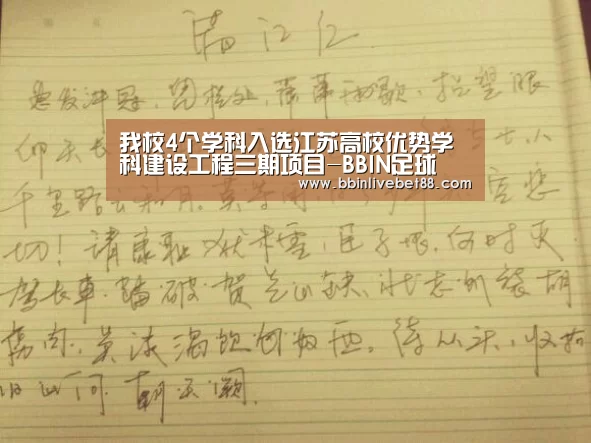 满江红
怒发冲冠，凭栏处，潇潇雨歇，抬望眼
仰天长
我校4个学科入选江苏高校优势学
科建设工程三期项目-BBIN足球
www.bbinlivebet88.com
千里路云和月，莫等闲
空悲
切！靖康耻 犹未雪，臣子恨，何时灭
驾长车，踏破贺兰山缺，壮志饥餐胡
虏肉，笑谈渴饮匈奴血，待从头，收拾
旧山河 朝天阙。